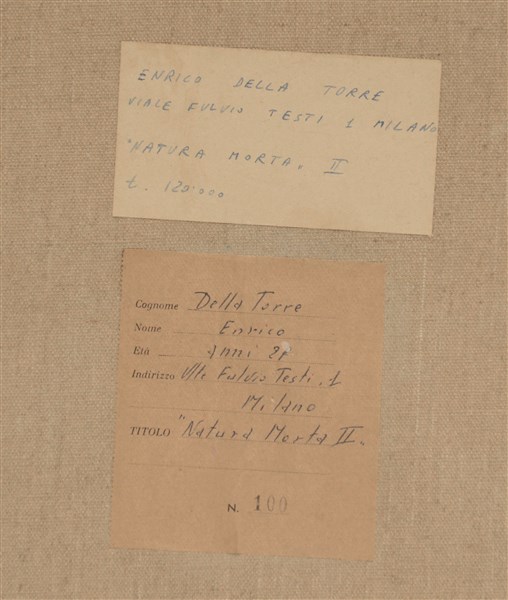 ENRICO DELLA TORRE
VIALE FULVIO TESTI 1 MILANO
"NATURA MORTA. II
£. 120.000
Cognome Della Torre
Nome Enrico
Età anni
Indirizzo Vle Fulvio Testi, 1
Milano
TITOLO "Natura Morta II.
N. 100